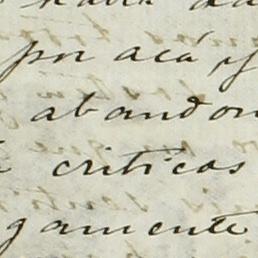 por acá, y
abandon
criticas
gamente